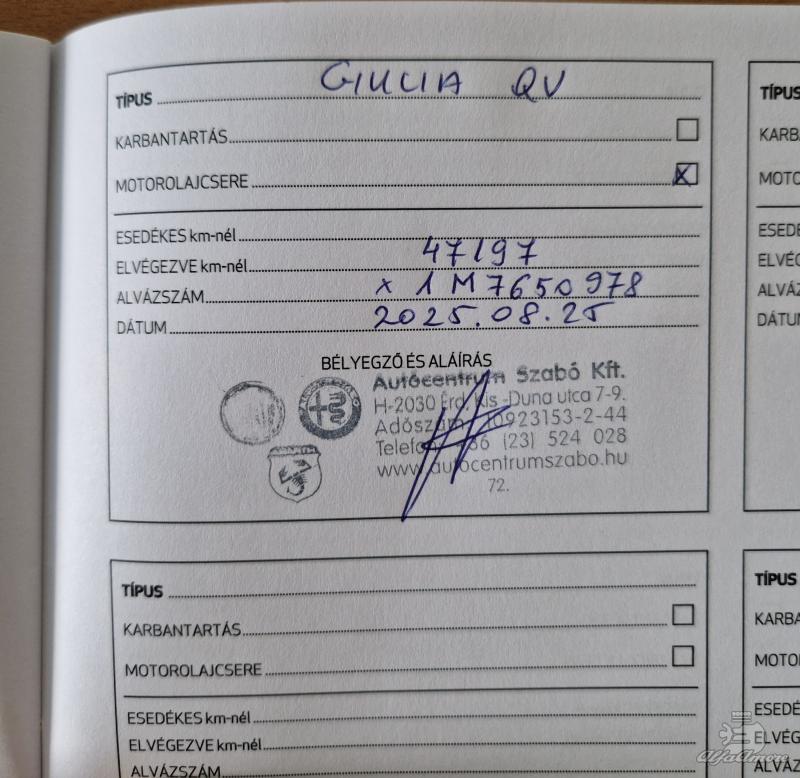 GIULIA QV
TÍPUS
KARBANTARTÁS
MOTOROLAJCSERE X
ESEDÉKES km-nél
ELVÉGEZVE km-nél 47197
ALVÁZSZÁM x 1 M 7650978
DÁTUM 2025.08.25
BÉLYEGZŐ ÉS ALÁÍRÁS
Autócentrum Szabó Kft.
H-2030 Érd, Kis-Duna utca 7-9.
Adószám: 10923153-2-44
Telefon: 36 (23) 524 028
www.autocentrumszabo.hu
72.
TÍPUS
KARBANTARTÁS
MOTOROLAJCSERE
ESEDÉKES km-nél
ELVÉGEZVE km-nél
ALVÁZSZÁM
TÍPUS
KARB
MOTO
ESEDÉ
ELVÉG
ALVÁZ
DÁTUM
TÍPUS
KARBA
MOTO
ESEDÉ
ELVÉG
ALVÁZ
AlfaAmore